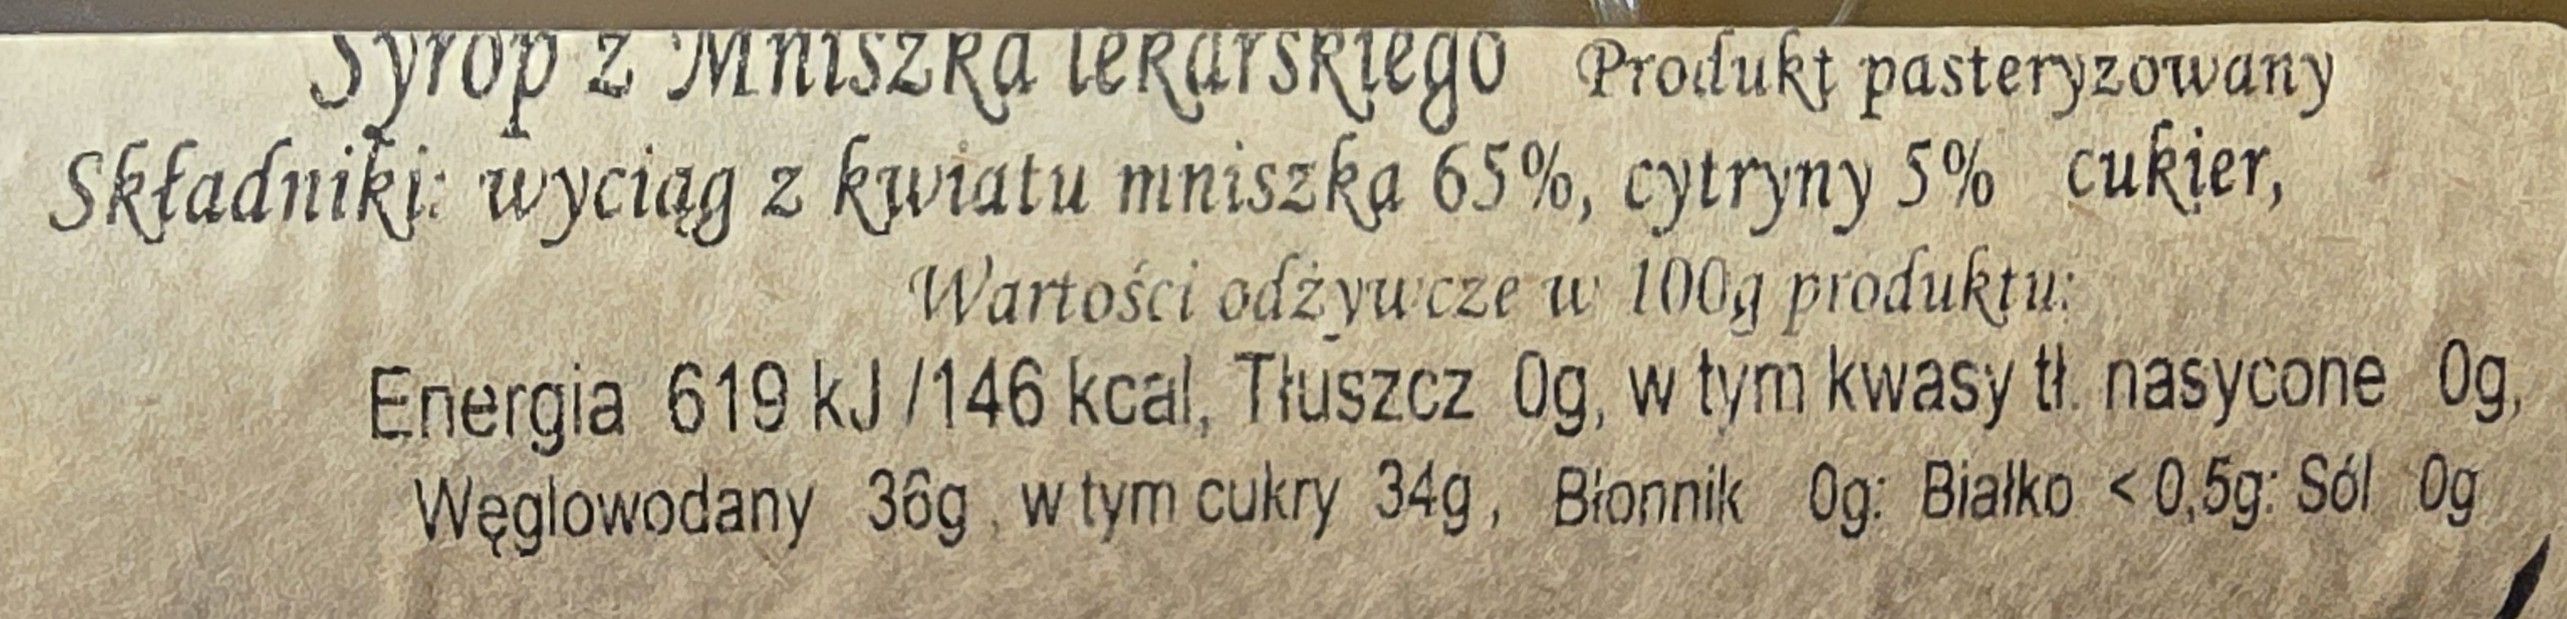 Syrop z Mniszka lekarskiego Produkt pasteryzowany
Składniki: wyciąg z kwiatu mniszka 65%, cytryny 5% cukier,
Wartości odżywcze w 100g produktu:
Energia 619 kJ /146 kcal, Tłuszcz 0g, w tym kwasy tł. nasycone 0g,
Węglowodany 36g , w tym cukry 34g , Błonnik 0g: Białko < 0,5g: Sól 0g